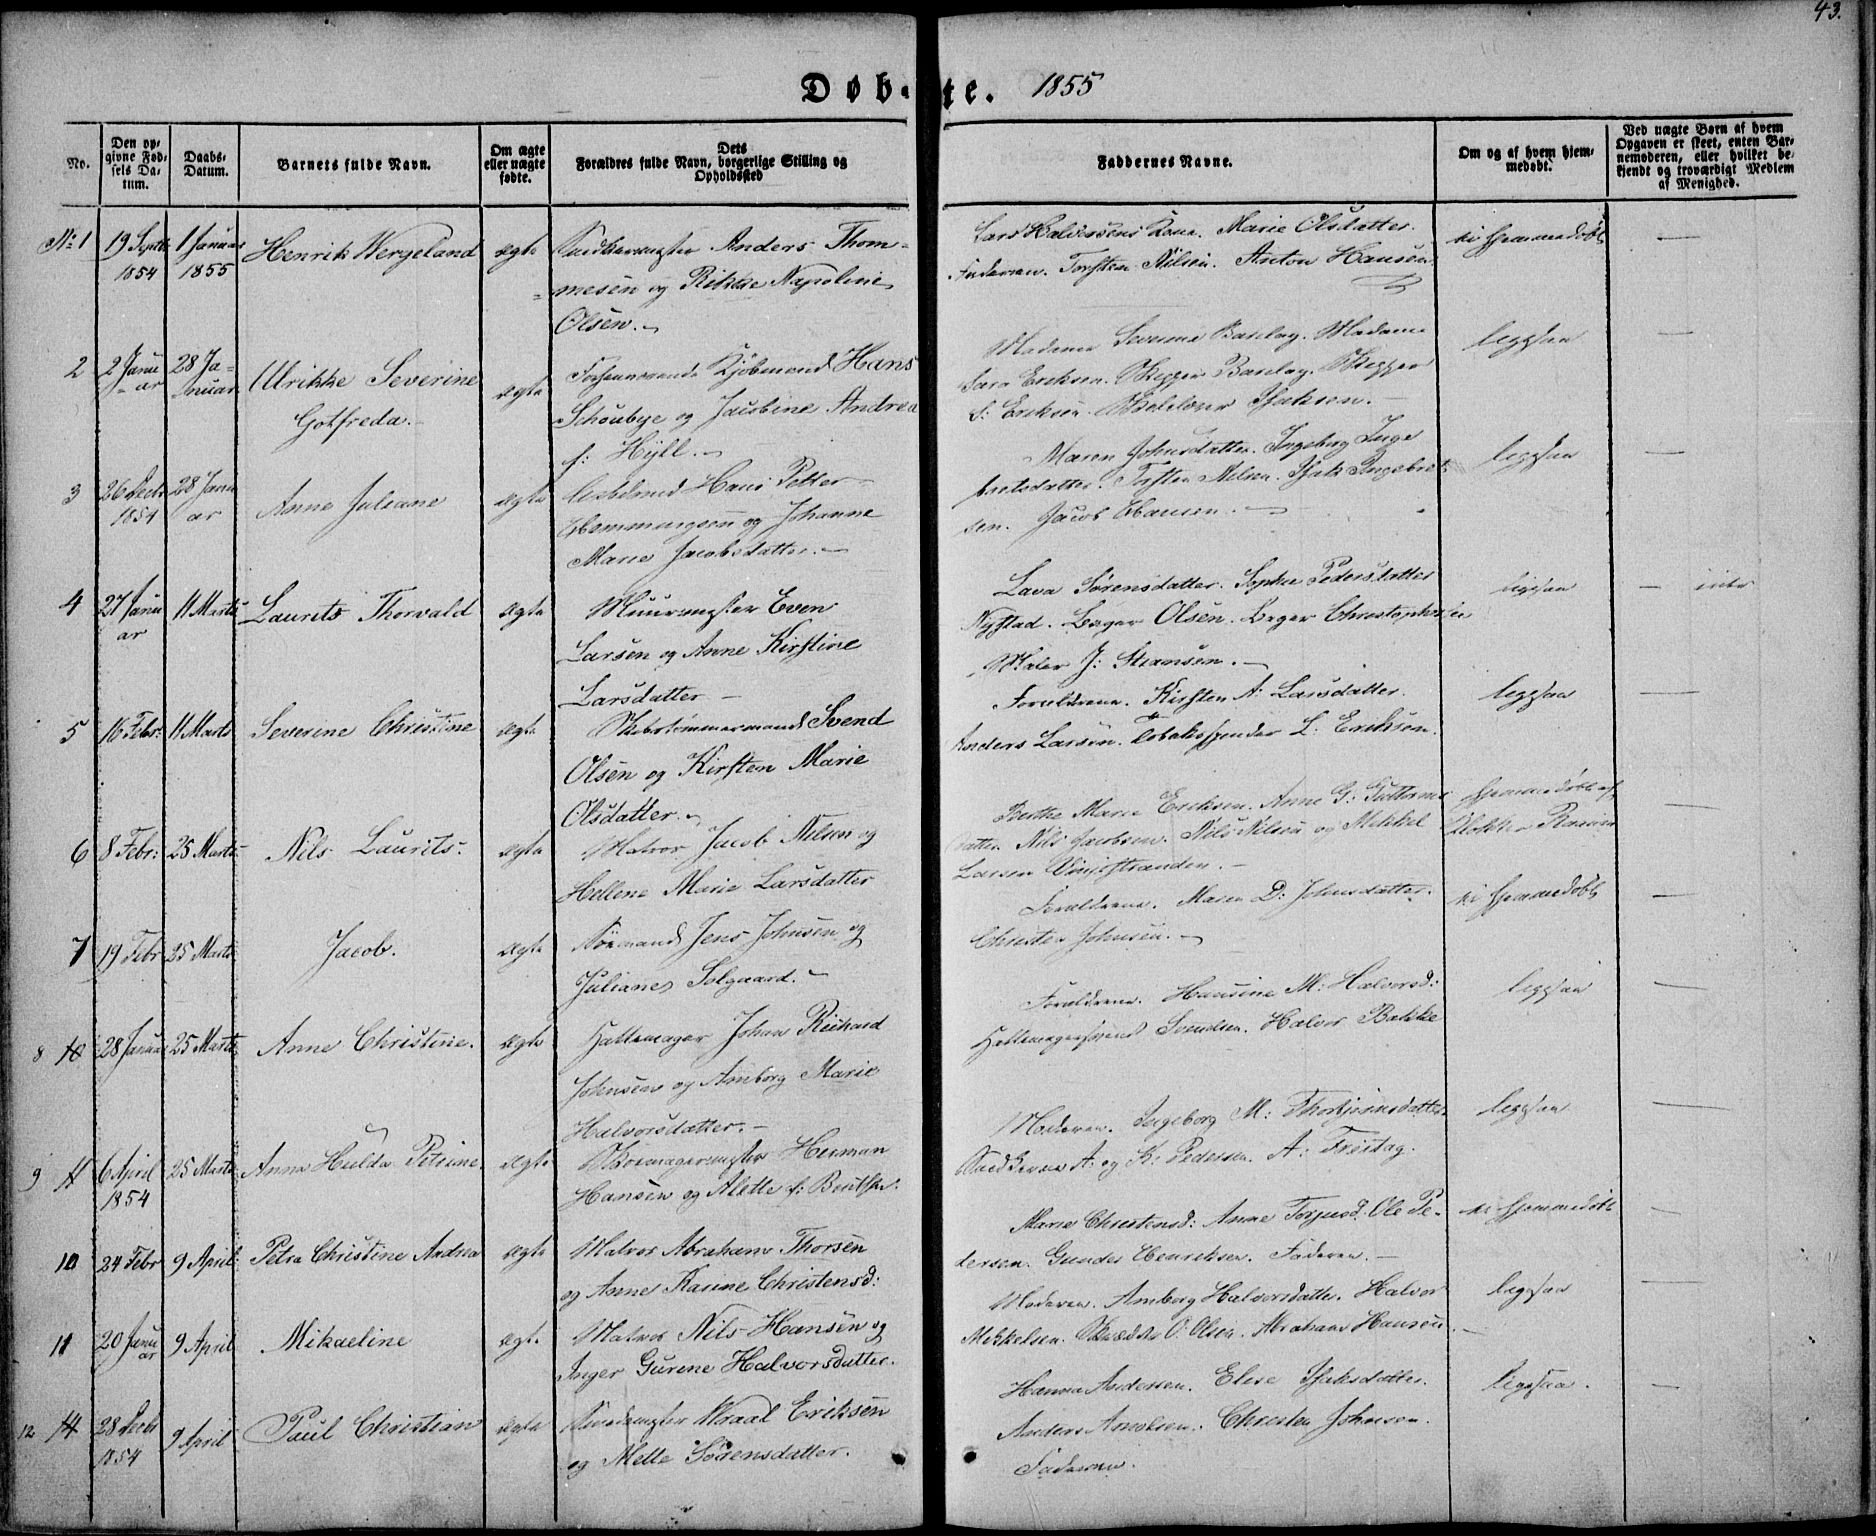 43.
Døbte. 1855
No.
Den opgivne Fødsels Datum.
Daabs-Datum.
Barnets fulde Navn.
Om ægte eller uægte fødte.
Dets Forældres fulde Navn, borgerlige Stilling og Opholdssted
Faddernes Navne.
Om og af hvem hjemmedøbt.
Ved uægte Børn af hvem Opgaven er skeet, enten Barnemoderen, eller hvilket bekjendt og troværdigt Medlem af Menighed.
No 1 19 Septbr 1 Januar Henrik Wergeland ægte Snedkermester Anders Thom-
1854 1855 mesen og Rikke Napoline
Olsen.
Lars Halvorsens Kone. Marie Olsdatter. ei hjemmedøbt —
Faderen. Torsten Nilsen. Anton Hansen
2 2 Janu 28 Ja- Ulrikke Severine ægte Kjøbmand Hans
ar nuar Gotfreda. Schoubye og Jacobine Andrea
f: Hÿll.
Madame Severine Barclay. Madame ligesaa —
Sara Eriksen. Skipper Barclay. Skipper
S: Eriksen. Isaksen.
3 26 Decbr 28 Janu Anne Juliane ægte Arbdsmd Hans Petter
1854 ar Hemmingsen og Johanne
Marie Jacobsdatter.
Maren Johnsdatter. Ingeborg Inge ligesaa —
bretsdatter. Torsten Nilsen. Isak Ingebret
sen. Jacob Hansen.
4 27 Janu 11 Marts Laurits Thorvald ægte Muurmester Even
ar Larsen og Anne Kirstine
Larsdatter
Lava Sørensdatter. Sophie Pedersdatter ligesaa —
Nystad. Bager Olsen. Bager Christophersen
Maler J:
5 16 Febr: 11 Marts Severine Christine ægte Skibstømmermand Svend
Olsen og Kirsten Marie
Olsdatter.
Forældrene. Kirsten A: Larsdatter. ligesaa —
Anders Larsen. Tobakspinder L. Eriksen.
6 8 Febr: 25 Marts Nils Laurits. ægte Matros Jacob Nilsen og
Hellene Marie Larsdatter
Berthe Marie Eriksen. Anne G: Guttorms hjemmedøbt af —
datter. Nils Jacobsen. Nils Nilsen og Mikkel Klokker
Larsen
7 19 Febr 25 Marts Jacob. ægte Jens Johnsen og
Juliane Solgaard.
Forældrene. Maren D: Johnsdatter. ei hjemmedøbt —
Christen Johnsen.
8 10 28 Januar 25 Marts Anne Christine. ægte Hattemager Johan Richard
Johnsen og Amborg Marie
Halvorsdatter.
Forældrene. Hansine M: Halvorsd: ligesaa —
Hattemagersvend Svendsen. Halvor Bakke
9 11 6 April 25 Marts Anna Hulda Petrine. ægte Skomagermester Herman
1854 Hansen og Alette f: Bentsen.
Moderen. Ingeborg M: Thorbjørnsdatter. ligesaa —
Snedkerne A: og K: Pedersen. A: Freitag.
10 24 Febr 9 April Petra Christine Andrea ægte Matros Abraham Thorsen
og Anne Karine Christensd:
Marie Christensd: Anne Torjusd. Ole Pe- ei hjemmedøbt —
dersen. Gunder Henriksen. Faderen.
11 20 Janu 9 April Mikaeline ægte Matros Nils Hansen og
ar Inger Gurene Halvorsdatter.
Moderen. Amborg Halvorsdatter. Halvor ligesaa —
Mikkelsen. O: Olsen. Abraham Hansen
12 14 28 Decbr 9 April Paul Christian ægte Wraal Eriksen
1854 og Mette Sørensdatter.
Hanna Andersen. Elise Isaksdatter. ligesaa. —
Anders Christen Johnsen.
Faderen.